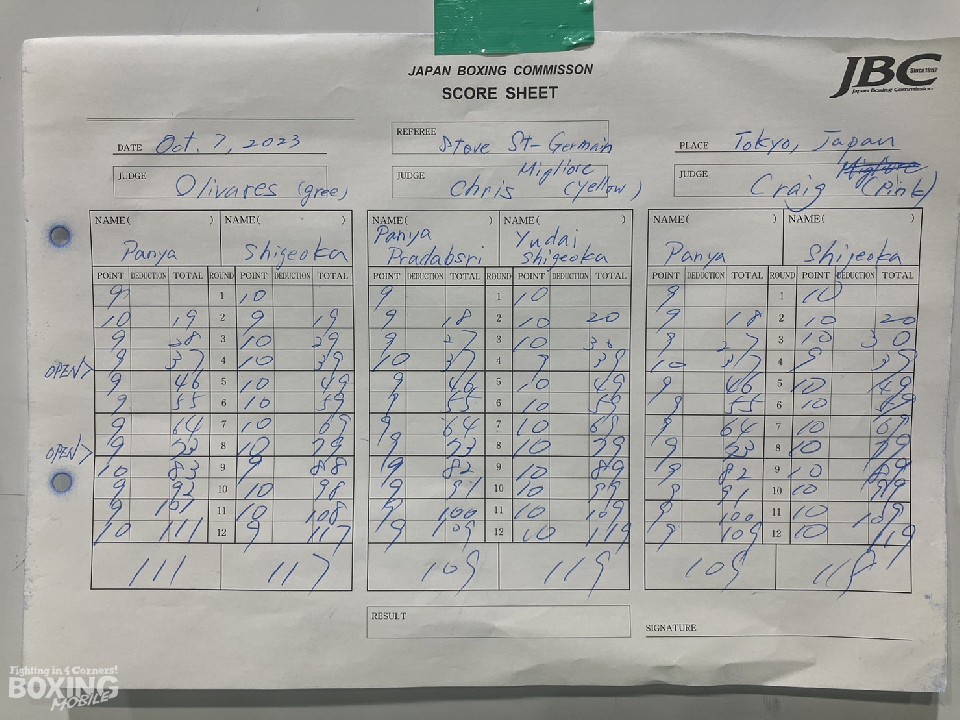 JAPAN BOXING COMMISSON
SCORE SHEET
JBC
SINCE 1952
Japan Boxing Commission
DATE Oct. 7, 2023
REFEREE Steve St-Germain
PLACE Tokyo, Japan
JUDGE Olivares (gree)
JUDGE Chris Migliore (Yellow)
JUDGE Craig Migliore (Pink)
NAME( ) NAME( ) NAME( ) NAME( ) NAME( ) NAME( )
Panya Shigeoka Panya Pradabsri Yudai Shigeoka Panya Shigeoka
POINT DEDUCTION TOTAL ROUND POINT DEDUCTION TOTAL POINT DEDUCTION TOTAL ROUND POINT DEDUCTION TOTAL POINT DEDUCTION TOTAL ROUND POINT DEDUCTION TOTAL
9 1 10 9 1 10 9 1 10
10 19 2 9 19 9 18 2 10 20 9 18 2 10 20
9 28 3 10 29 9 27 3 10 30 9 27 3 10 30
OPEN> 9 37 4 10 39 10 37 4 9 39 10 37 4 9 39
9 46 5 10 49 9 46 5 10 49 9 46 5 10 49
9 55 6 10 59 9 55 6 10 59 9 55 6 10 59
9 64 7 10 69 9 64 7 10 69 9 64 7 10 69
OPEN> 9 73 8 10 79 9 73 8 10 79 9 73 8 10 79
10 83 9 9 88 9 82 9 10 89 9 82 9 10 89
9 92 10 10 98 9 91 10 10 99 9 91 10 10 99
9 101 11 10 108 9 100 11 10 109 9 100 11 10 109
10 111 12 9 117 9 109 12 10 119 9 109 12 10 119
111 117 109 119 109 119
RESULT
SIGNATURE
Fighting in 4 Corners!
BOXING
MOBILE